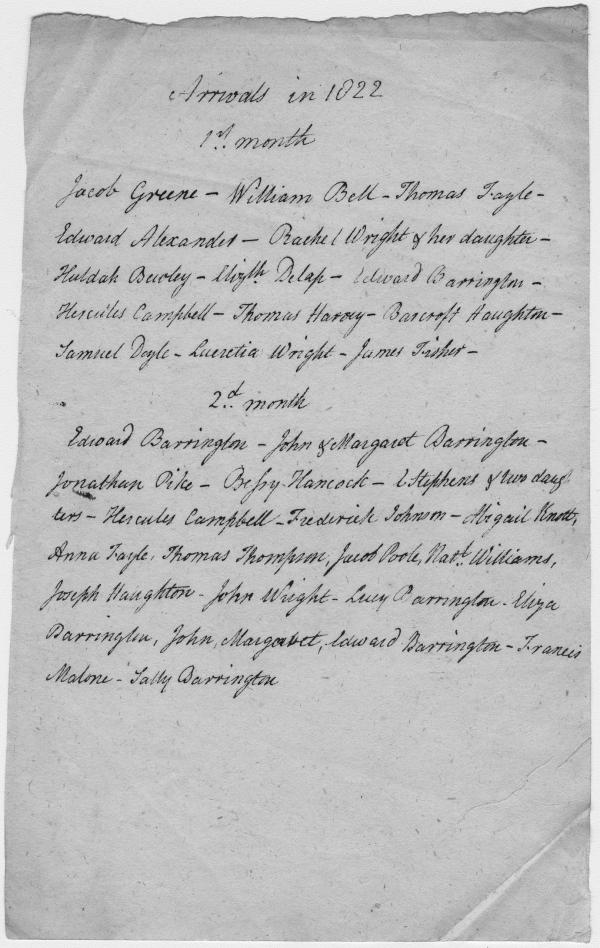 Arrivals in 1822
1st. month
Jacob Greene - William Bell - Thomas Fayle -
Edward Alexander - Rachel Wright & her daughter -
Huldah Bewley - Elizth. Delap - Edward Barrington -
Hercules Campbell - Thomas Harvey - Barcroft Haughton -
Samuel Doyle - Lucretia Wright - James Fisher -
2d. month
Edward Barrington - John & Margaret Barrington -
Jonathan Pike - Bessy Hancock - E Stephens & two daugh
ters - Hercules Campbell - Frederick Johnson - Abigail Knott,
Anna Fayle, Thomas Thompson, Jacob Poole, Natl. Williams,
Joseph Haughton - John Wright - Lucy Barrington - Eliza
Barrington, John, Margaret, Edward Barrington - Francis
Malone - Sally Barrington